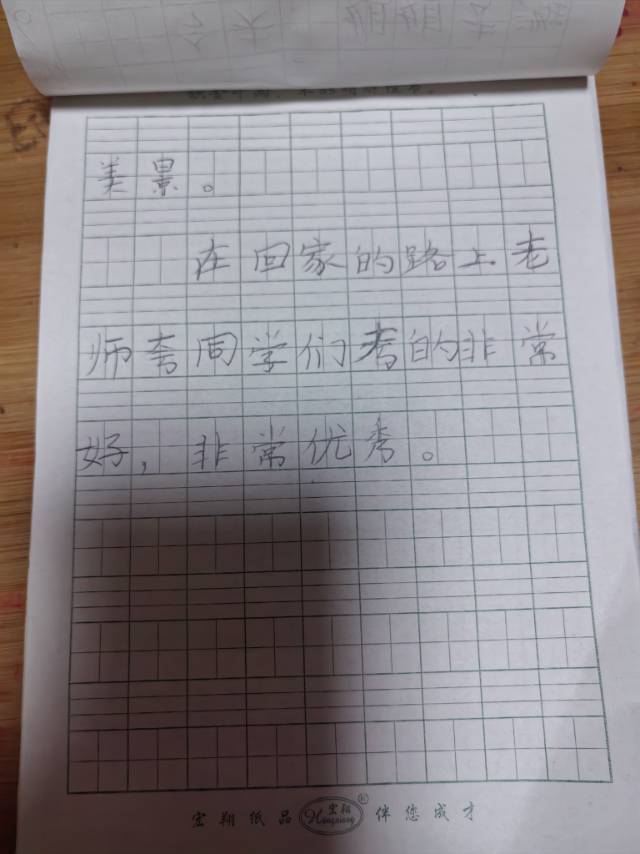 美景。
在回家的路上老
师夸同学们考的非常
好，非常优秀。
宝翔纸品 宝翔 Hongxiang ® 伴您成才